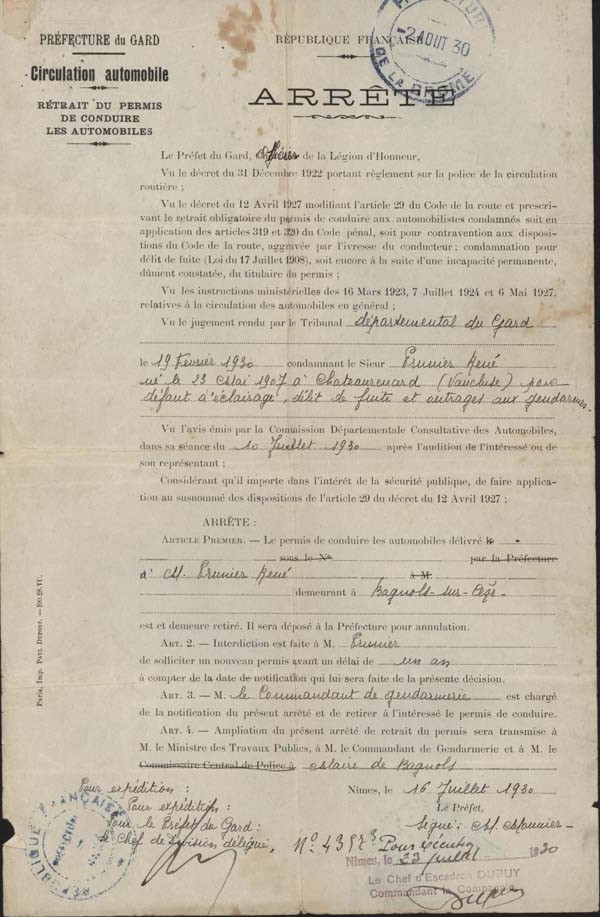 PRÉFECTURE du GARD
Circulation automobile
RÉTRAIT DU PERMIS
DE CONDUIRE
LES AUTOMOBILES
RÉPUBLIQUE FRANÇAISE
-2 AOUT 30
DE LA DROME
ARRÊTÉ
Le Préfet du Gard, Officier de la Légion d'Honneur,
Vu le décret du 31 Décembre 1922 portant règlement sur la police de la circulation
routière ;
Vu le décret du 12 Avril 1927 modifiant l'article 29 du Code de la route et prescri-
vant le retrait obligatoire du permis de conduire aux automobilistes condamnés soit en
application des articles 319 et 320 du Code pénal, soit pour contravention aux disposi-
tions du Code de la route, aggravée par l'ivresse du conducteur ; condamnation pour
délit de fuite (Loi du 17 Juillet 1908), soit encore à la suite d'une incapacité permanente,
dûment constatée, du titulaire du permis ;
Vu les instructions ministérielles des 16 Mars 1923, 7 Juillet 1924 et 6 Mai 1927,
relatives à la circulation des automobiles en général ;
Vu le jugement rendu par le Tribunal départemental du Gard
le 19 Février 1930 condamnant le Sieur Prunier René
né le 23 Mai 1907 à Chateaurenard (Vaucluse) pour
défaut d'éclairage, délit de fuite et outrages aux gendarmes.
Vu l'avis émis par la Commission Départementale Consultative des Automobiles,
dans sa séance du 10 Juillet 1930 après l'audition de l'intéressé ou de
son représentant ;
Considérant qu'il importe dans l'intérêt de la sécurité publique, de faire applica-
tion au susnommé des dispositions de l'article 29 du décret du 12 Avril 1927 ;
ARRÊTE :
ARTICLE PREMIER. — Le permis de conduire les automobiles délivré le
sous le No par la Préfecture
d' M. Prunier René à M.
demeurant à Bagnols-sur-Cèze
est et demeure retiré. Il sera déposé à la Préfecture pour annulation.
ART. 2. — Interdiction est faite à M. Prunier
de solliciter un nouveau permis avant un délai de un an
à compter de la date de notification qui lui sera faite de la présente décision.
ART. 3. — M. le Commandant de gendarmerie est chargé
de la notification du présent arrêté et de retirer à l'intéressé le permis de conduire.
ART. 4. — Ampliation du présent arrêté de retrait du permis sera transmise à
M. le Ministre des Travaux Publics, à M. le Commandant de Gendarmerie et à M. le
Commissaire Central de Police à Maire de Bagnols
Nîmes, le 16 Juillet 1930
Le Préfet,
Signé : M. Mounier
Pour expédition :
Pour expédition :
Pour le Préfet du Gard :
Le Chef de Division délégué,
No 4352/3 Pour exécution
Nîmes, le 23 juillet 1930
Le Chef d'Escadron DUPUY
Commandant la Compagnie
RÉPUBLIQUE FRANÇAISE
Paris, Imp. Paul Dupont.